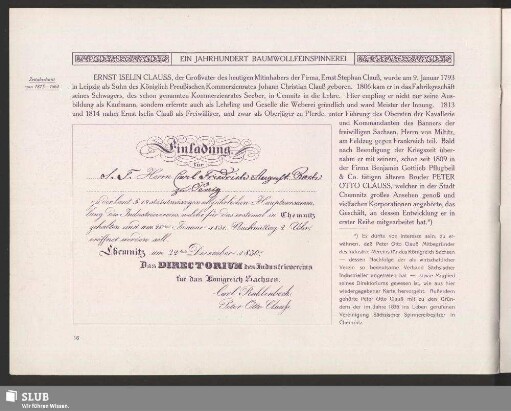 EIN JAHRHUNDERT BAUMWOLLFEINSPINNEREI
ERNST ISELIN CLAUSS, der Großvater des heutigen Mitinhabers der Firma, Ernst Stephan Clauß, wurde am 9. Januar 1793
in Leipzig als Sohn des Königlich Preußischen Kommerzienrates Johann Christian Clauß geboren. 1806 kam er in das Fabrikgeschäft
seines Schwagers, des schon genannten Kommerzienrates Seeber, in Chemnitz in die Lehre. Hier empfing er nicht nur seine Aus-
bildung als Kaufmann, sondern erlernte auch als Lehrling und Geselle die Weberei gründlich und ward Meister der Innung. 1813
und 1814 nahm Ernst Iselin Clauß als Freiwilliger, und zwar als Oberjäger zu Pferde, unter Führung des Obersten der Kavallerie
und Kommandanten des Banners der
freiwilligen Sachsen, Herrn von Miltitz,
am Feldzug gegen Frankreich teil. Bald
nach Beendigung der Kriegszeit über-
nahm er mit seinem, schon seit 1809 in
der Firma Benjamin Gottlieb Pflugbeil
& Co. tätigen älteren Bruder PETER
OTTO CLAUSS, welcher in der Stadt
Chemnitz großes Ansehen genoß und
vielfachen Korporationen angehörte, das
Geschäft, an dessen Entwicklung er in
erster Reihe mitgearbeitet hat.*)
*) Es dürfte von Interesse sein, zu er-
wähnen, daß Peter Otto Clauß Mitbegründer
des Industrie-Vereins für das Königreich Sachsen
— dessen Nachfolge der als wirtschaftlicher
Verein so bedeutsame Verband Sächsischer
Industrieller angetreten hat — sowie Mitglied
seines Direktoriums gewesen ist, wie aus hier
wiedergegebener Karte hervorgeht. Außerdem
gehörte Peter Otto Clauß mit zu den Grün-
dern der im Jahre 1836 ins Leben gerufenen
Vereinigung Sächsischer Spinnereibesitzer in
Chemnitz.
Einladung
für
Herrn Carl Friedrich August
zu Penig
Hauptversamm-
lung des Industrievereins, welche für das erstemal in Chemnitz
gehalten und am Januar Nachmittag 2 Uhr
eröffnet werden soll.
Chemnitz, am December
Das DIRECTORIUM des Industrievereins
für das Königreich Sachsen.
Peter Otto Clauß
SLUB
Wir führen Wissen.